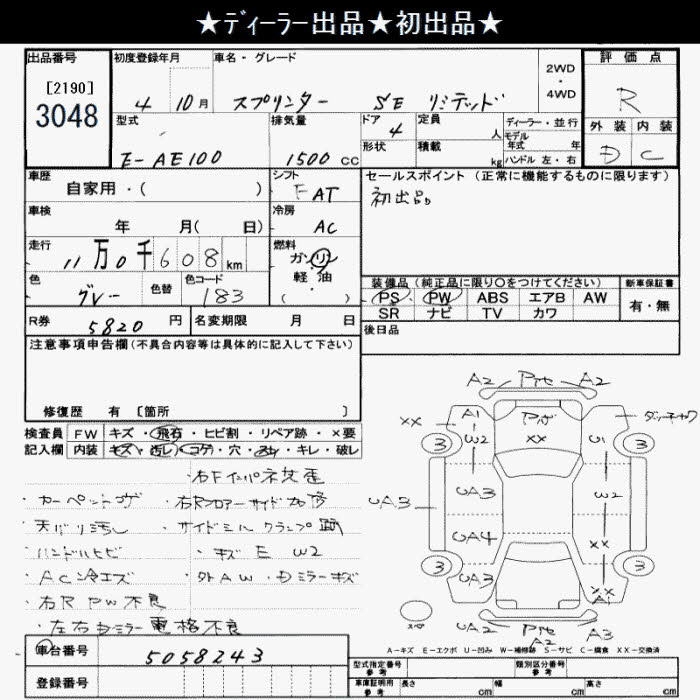 ★ディーラー出品★初出品★
出品番号 初度登録年月 車名・グレード 2WD・4WD 評価点
[2190]
3048
4 10月 スプリンター SE リミテッド R
型式 排気量 ドア 4 定員 人 ディーラー・並行 外装 内装
モデル年式 年
E-AE100 1500cc 形状 積載 kg ハンドル 左・右 D C
車歴 シフト セールスポイント (正常に機能するものに限ります)
自家用・( ) F AT 初出品
車検 冷房
年 月( 日) AC
走行 燃料
11万0千608km ガソリン
色 色替 色コード 軽・油 装備品 (純正品に限り○をつけてください) 新車保証書
グレー 183 ( ) PS PW ABS エアB AW 有・無
SR ナビ TV カワ
R券 5820円 名変期限 月 日 後日品
注意事項申告欄 (不具合内容等は具体的に記入して下さい)
修復歴 有 [箇所 ]
検査員 FW キズ・飛石・ヒビ割・リペア跡・×要
記入欄 内装 キズ・汚レ・コゲ・穴・スレ・キレ・破レ
右Fインパネ交歪
・カーペットコゲ ・右Rフロアーサイド加修
・天バリ汚し ・サイドシルクランプ跡
・ハンドルヒビ ・キズ E W2
・AC冷エズ ・外AW・Dミラーキズ
・右R PW不良
・左右Dミラー電格不良
車台番号 5058243
登録番号
A2 A2
XX A1 XX
3 W2 U1 3
UA3 UA3 W2
UA4 XX
3 UA3 XX 3
A1
UA2 A2 A3
A-キズ E-エクボ U-凹み W-補修跡 S-サビ C-腐食 XX-交換済
型式指定番号 参考 類別区分番号 参考
車庫証明用 参考 長さ cm 幅 cm 高さ cm